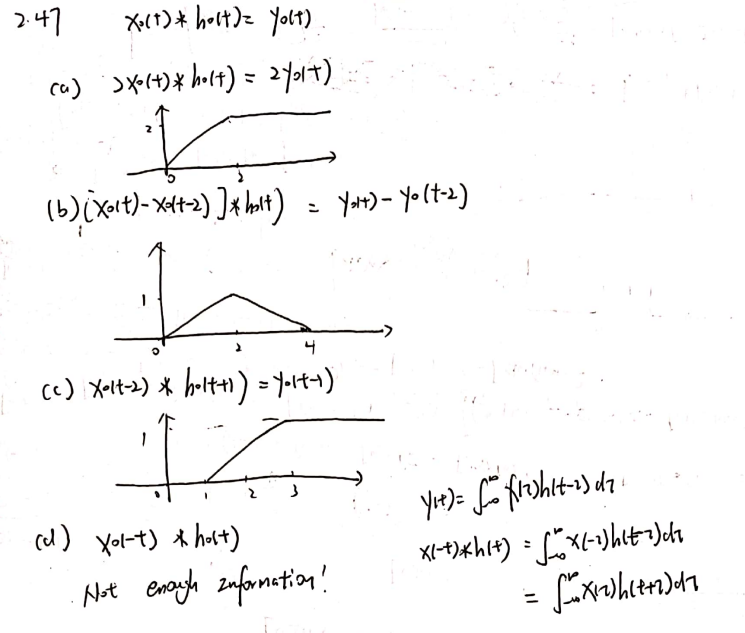 2.47 x₀(t) * h₀(t) = y₀(t)
(a) 2x₀(t) * h₀(t) = 2y₀(t)
2
0 2
(b) [x₀(t) - x₀(t-2)] * h₀(t) = y₀(t) - y₀(t-2)
1
0 2 4
(c) x₀(t-2) * h₀(t+1) = y₀(t-1)
1
0 1 2 3
(d) x₀(-t) * h₀(t)
Not enough information!
y(t) = ∫_{-∞}^{∞} x(τ)h(t-τ)dτ
x(-t)*h(t) = ∫_{-∞}^{∞} x(-τ)h(t-τ)dτ
= ∫_{-∞}^{∞} x(τ)h(t+τ)dτ